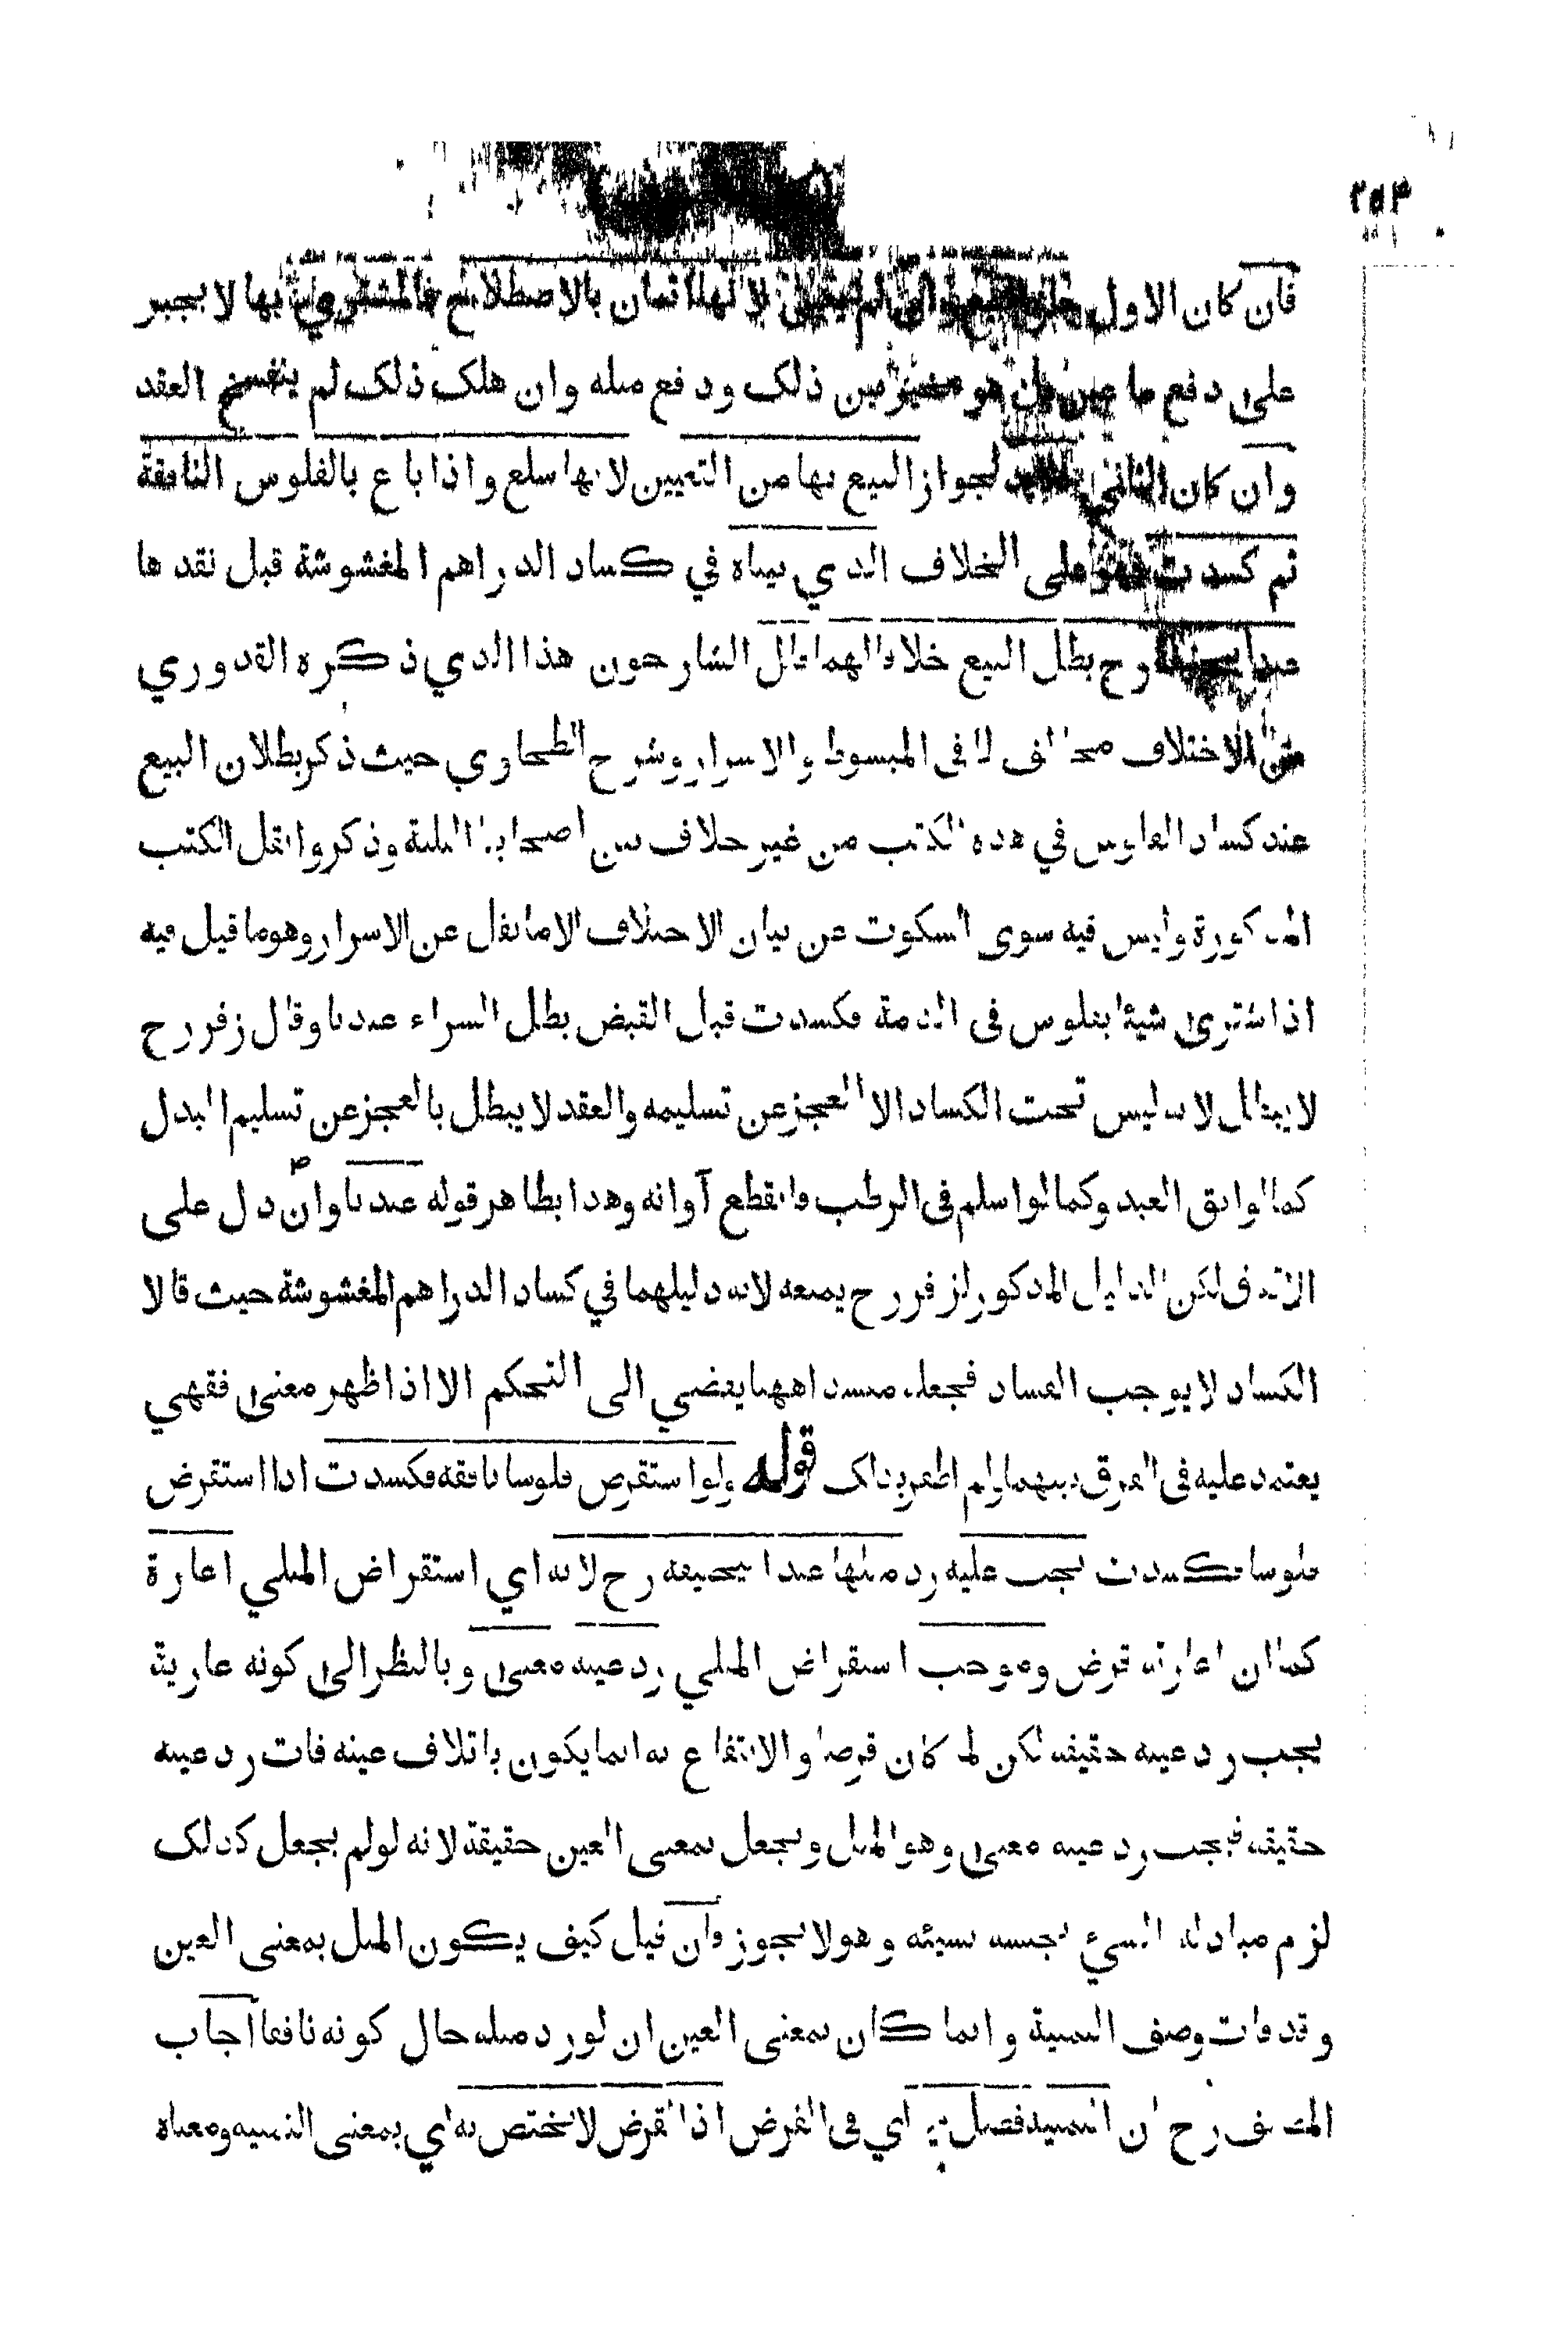 ٢٥٣
فان كان الاول جاز البيع وان لم يعين لانها اثمان بالاصطلاح فالمشتري بها لا يجبر
على دفع ما عين بل هو مخير بين ذلك ودفع مثله وان هلك ذلك لم ينفسخ العقد
وان كان الثاني فلابد لجواز البيع بها من التعيين لانها سلع واذا باع بالفلوس النافقة
ثم كسدت فهو على الخلاف الذي بيناه في كساد الدراهم المغشوشة قبل نقدها
عند ابيحنيفة رح بطل البيع خلافا لهما قال الشارحون هذا الذي ذكره القدوري
من الاختلاف مخالف لما في المبسوط والاسرار وشرح الطحاوي حيث ذكر بطلان البيع
عند كساد الفلوس في هذه الكتب من غير خلاف بين اصحابنا الثلثة وذكروا نقل الكتب
المذكورة وليس فيه سوى السكوت عن بيان الاختلاف الا ما نقل عن الاسرار وهو ما قيل فيه
اذا اشترى شيئا بفلوس في الذمة فكسدت قبل القبض بطل الشراء عندنا وقال زفر رح
لا يبطل لانه ليس تحت الكساد الا العجز عن تسليمه والعقد لا يبطل بالعجز عن تسليم البدل
كما لو ابق العبد وكما لو اسلم في الرطب فانقطع آوانه وهذا بظاهر قوله عندنا وان دل على
الاتفاق لكن الدليل المذكور لزفر رح يمنعه لانه دليلهما في كساد الدراهم المغشوشة حيث قالا
الكساد لا يوجب الفساد فجعله مفسدا ههنا يفضي الى التحكم الا اذا ظهر معنى فقهي
يعتمد عليه في الفرق بينهما ولم اظفر بذلك قوله ولو استقرض فلوسا نافقه فكسدت اذا استقرض
فلوسا فكسدت يجب عليه رد مثلها عند ابيحنيفه رح لانه اي استقراض المثلي اعارة
كما ان اعارته قرض وموجب استقراض المثلي رد عينه معنى وبالنظر الى كونه عارية
يجب رد عينه حقيقه لكن لما كان قرضا والانتفاع به انما يكون باتلاف عينه فات رد عينه
حقيقه فيجب رد عينه معنى وهو المثل ويجعل بمعنى العين حقيقة لانه لو لم يجعل كذلك
لزم مبادلة الشيء بجنسه نسيئه وهو لا يجوز فان قيل كيف يكون المثل بمعنى العين
وقد فات وصف الثمنية وانما كان بمعنى العين ان لو رد مثله حال كونه نافقا اجاب
المصنف رح ان الثمنيه فضل فيه اي في القرض اذ القرض لا يختص به اي بمعنى الثمنيه ومعناه